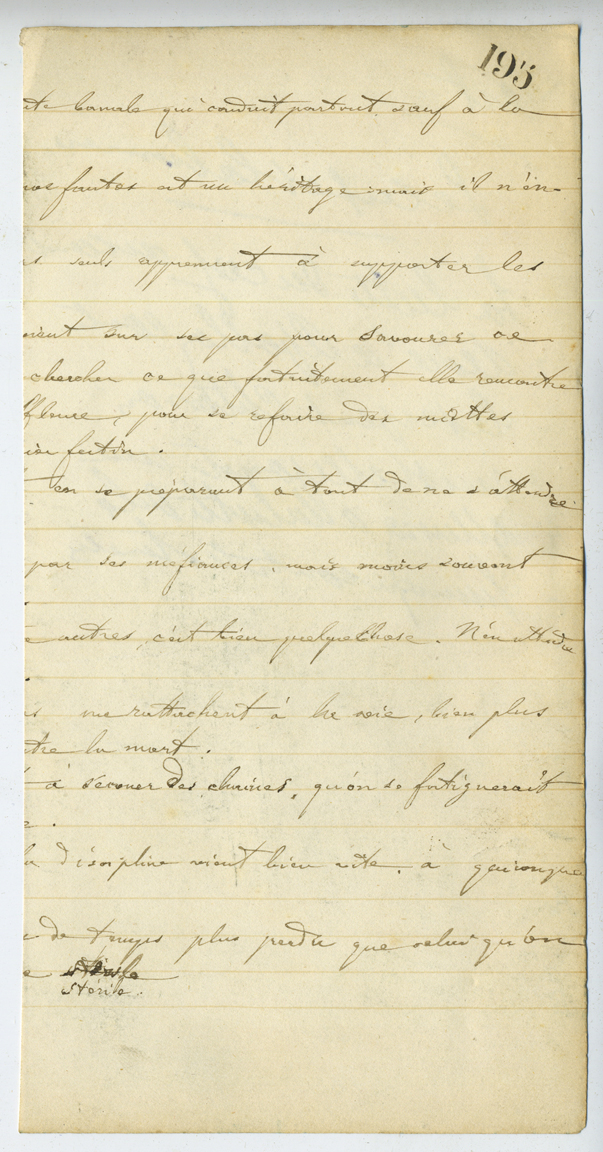 195
te banale qui conduit partout sauf à la
nos fautes est un héritage mais il n'en-
rs seuls apprennent à supporter les
vient sur ses pas pour savourer ce
chercher ce que fortuitement elle rencontre
fleure, pour se refaire des miettes
festin.
en se préparant à tout de ne s'attendre
par ses méfiances, mais moins souvent
e autres, c'est bien quelque chose. N'en attendre
is me rattachent à la vie, bien plus
tre la mort.
à secouer des chaînes, qu'on se fatiguerait
e.
la discipline vient bien vite à quiconque
de temps plus perdu que celui qu'on
e
stérile.